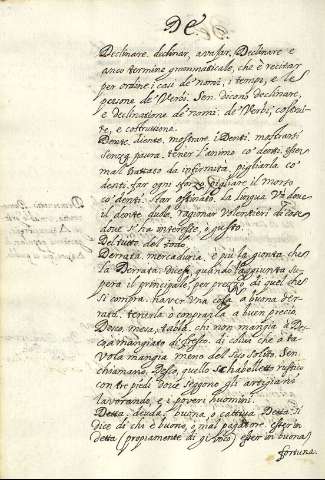 DE
Declinare. declinar, avajar. Declinare e
anco termine grammaticale, che è recitar
per ordine i casi de' nomi, i tempi, e le
persone de' Verbi. Sen. dicono declinare,
e declinatione de' nomi. de' Verbi, costrui-
re, e costruzione.
Dente. diente. mostrare i Denti. mostrarsi
senza paura. tener l'anima co' denti. esser
mal trattato da infirmità. pigliarla co'
denti. far ogni sforzo. pigliare il morso
co' denti. star ostinato. la lingua Và dove
il dente duole. ragionar Volentieri di cose
dove s'ha interesse, o gusto.
Del tutto. del todo.
Derrata. mercaduria. è più la gionta che
la Derrata. Dicesi, quando l'aggiunta su-
pera il principale, per prezzo di quel che
si compra. haver Una cosa a buona der-
rata. tenerla o comprarla a buen precio.
Desco. mesa, tabla. chi non mangia à De-
sco, ha mangiato di fresco. di colui che à ta-
vola mangia meno del suo solito. Sen.
chiamano Desco, quello scabelletto rustico
con tre piedi dove seggono gli artigiani
lavorando, e i poveri huomini.
Detta. deuda, buona, o cattiva Detta. si
dice di chi è buono, o mal pagatore. esser in
detta (propiamente di gioco) esser in buona
fortuna.